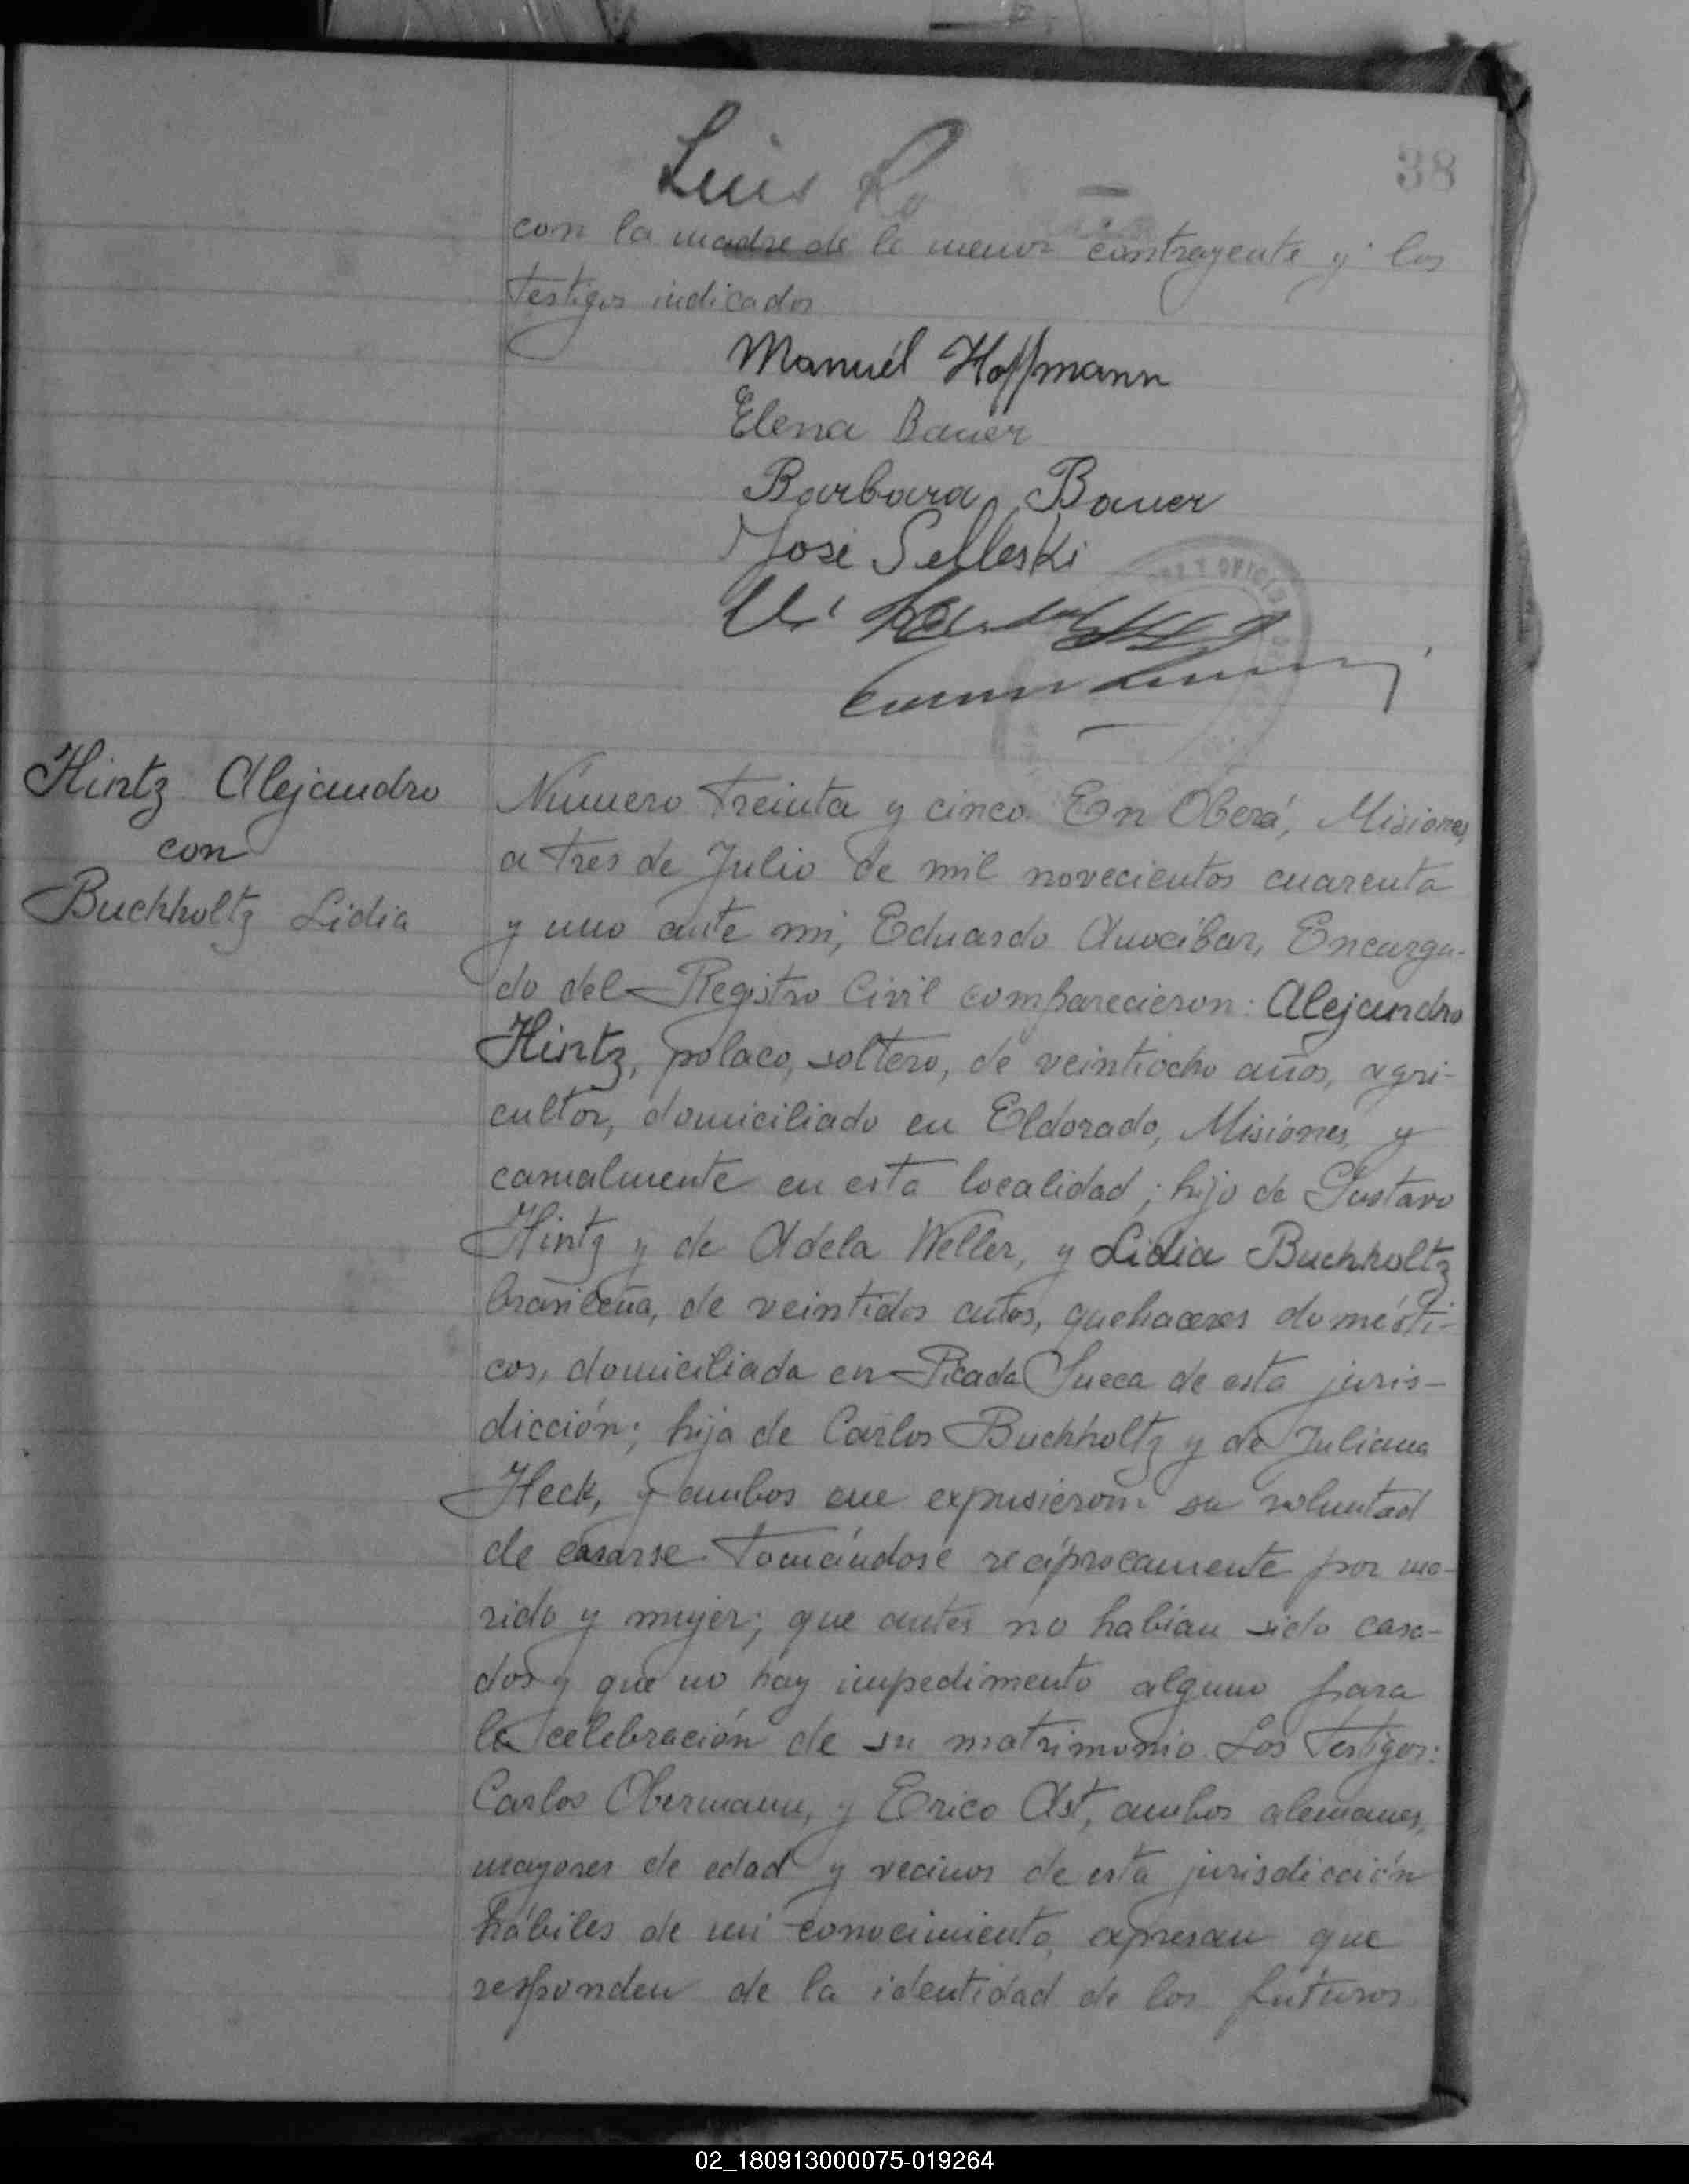 Luis
38
con la madre de la menor contrayente y los
testigos indicados
Manuél Hoffmann
Elena Bauer
Barbara Bauer
José Selleski
Hintz Alejandro
con
Buchholtz Lidia
Número treinta y cinco. En Oberá, Misiones,
a tres de Julio de mil novecientos cuarenta
y uno ante mi, Eduardo Anocibar, Encarga-
do del Registro Civil comparecieron: Alejandro
Hintz, polaco, soltero, de veintiocho años, agri-
cultor, domiciliado en Eldorado, Misiones, y
casualmente en esta localidad; hijo de Gustavo
Hintz y de Adela Weller, y Lidia Buchholtz
brasileña, de veintidos años, quehaceres domésti-
cos, domiciliada en Picada Sueca de esta juris-
dicción; hija de Carlos Buchholtz y de Juliana
Heck, y ambos me expusieron su voluntad
de casarse tomándose recíprocamente por ma-
rido y mujer; que antes no habian sido casa-
dos y que no hay impedimento alguno para
la celebración de su matrimonio. Los testigos:
Carlos Obermann, y Erico Ast, ambos alemanes,
mayores de edad y vecinos de esta jurisdicción
hábiles de mi conocimiento, expresan que
responden de la identidad de los futuros
02_180913000075-019264